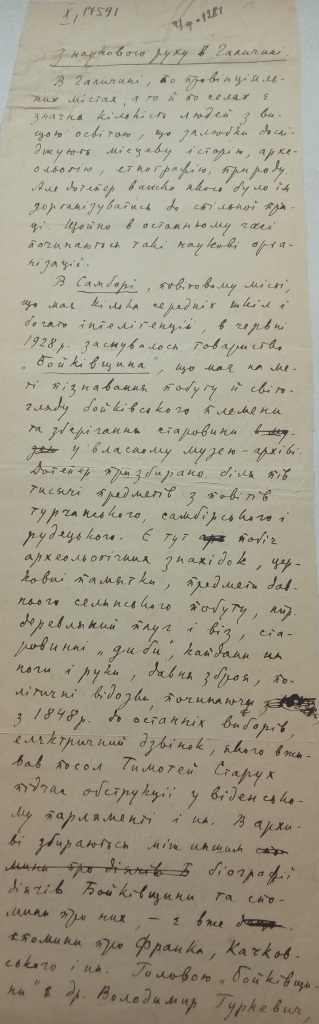 X, 17591
1281
З наукового руху в Галичині.
В Галичині, по провінціяль-
них містах, а то й по селах є
значна кількість людей з ви-
щою освітою, що залюбки дослі-
джують місцеву історію, архе-
ольогію, етнографію, природу.
Але дотепер важко якось було їм
зорганізуватись до спільної пра-
ці. Щойно в останньому часі
починаються такі наукові орга-
нізації.
В Самборі, повітовому місті,
що має кілька середніх шкіл і
богато інтелігенції, в червні
1928 р. заснувалось товариство
„Бойківщина", що має на ме-
ті пізнавання побуту й світо-
гляду бойківського племени
та зберігання старовини в му-
зею у власному музею-архіві.
Дотепер призбирано біля пів
тисячі предметів з повітів
турчанського, самбірського і
рудецького. Є тут побіч
археольогічних знахідок, цер-
ковні памятки, предмети дав-
нього селянського побуту, нпр.
деревляний плуг і віз, ста-
ровинні „диби", кайдани на
ноги і руки, давня зброя, по-
літичні відозви, починаючи
з 1848 р. до останніх виборів,
електричний дзвінок, якого вжи-
вав посол Тимотей Старух
підчас обструкції у віденсько-
му парляменті і ин. В архи-
ві збираються між иншим спо-
мини про діячів Б біографії
діячів Бойківщини та спо-
мини про них, – є вже
спомини про Франка, Качков-
ського і ин. Головою „Бойківщи-
ни" є др. Володимир Гуркевич,